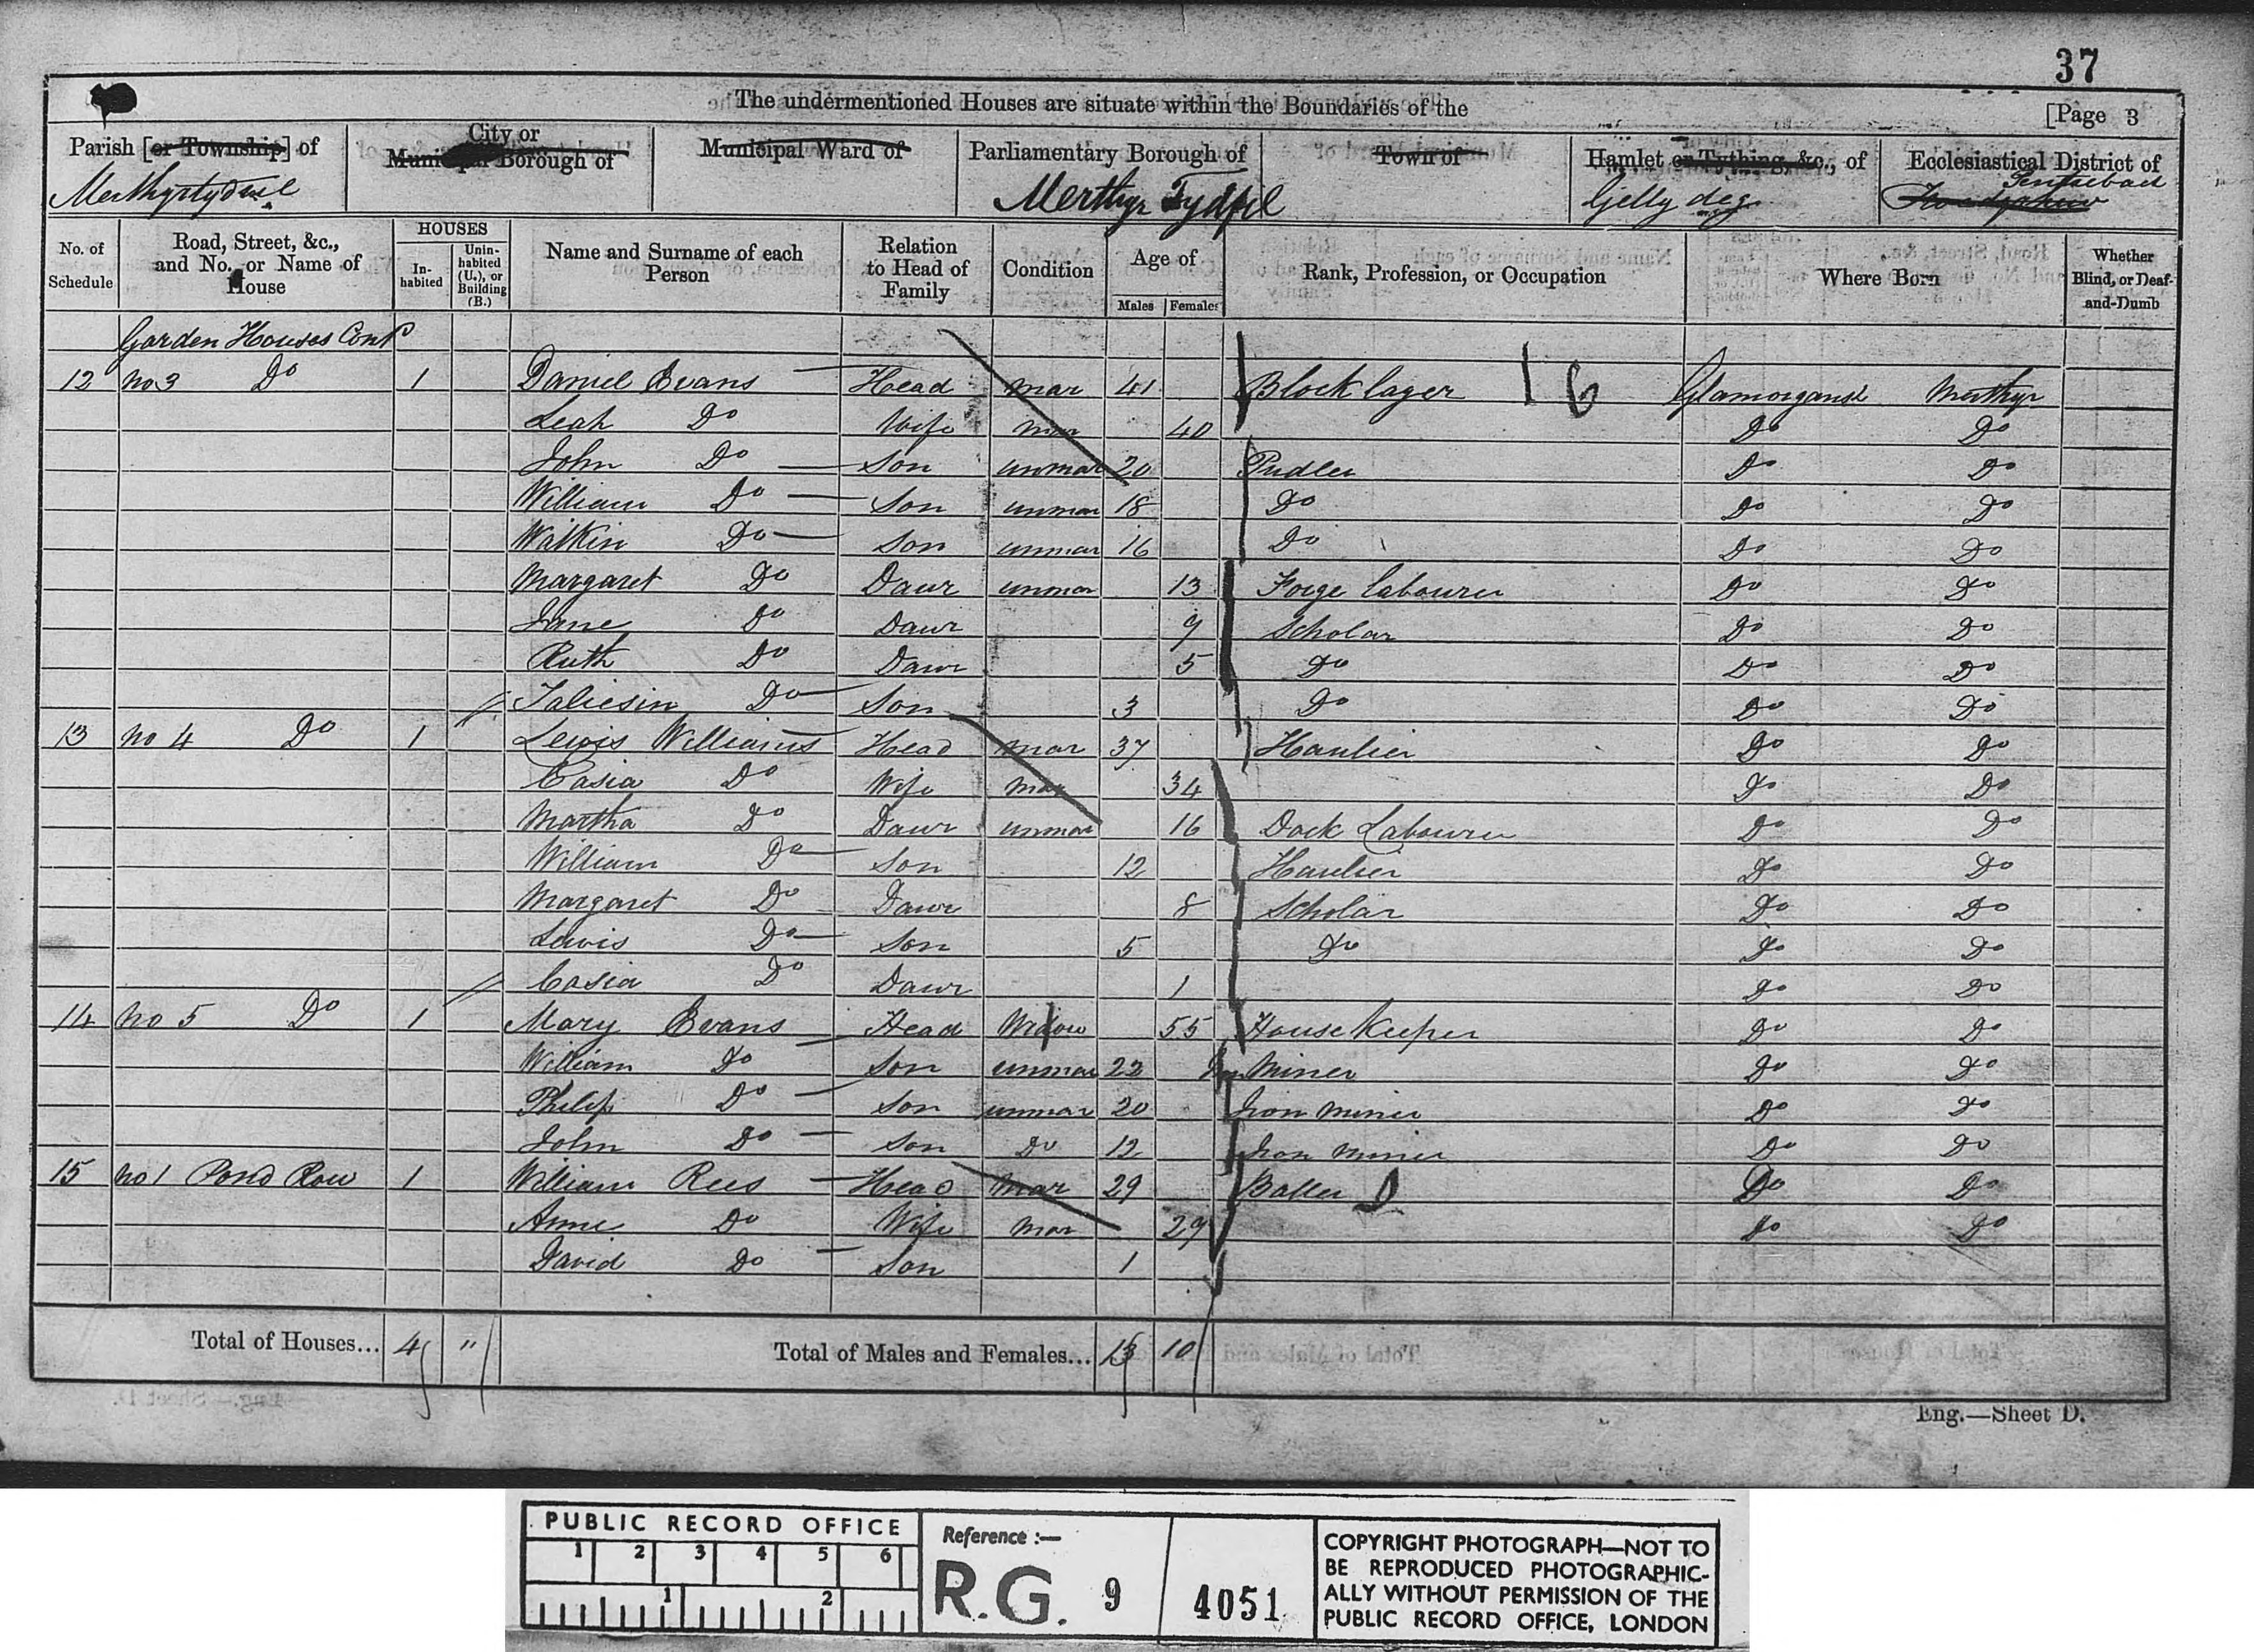 37
The undermentioned Houses are situate within the Boundaries of the
[Page 3
Parish [or Township] of
City or Municipal Borough of
Municipal Ward of
Parliamentary Borough of
Town of
Hamlet or Tything, &c., of
Ecclesiastical District of
Merthyrtydvil
Merthyr Tydfil
Gelly deg
No. of Schedule
Road, Street, &c., and No. or Name of House
HOUSES
In-habited
Unin-habited (U.), or Building (B.)
Name and Surname of each Person
Relation to Head of Family
Condition
Age of
Males
Females
Rank, Profession, or Occupation
Where Born
Whether Blind, or Deaf-and-Dumb
Garden Houses Cont
12 No 3 Do 1 Daniel Evans Head Mar 41 Block layer Glamorgansh Merthyr
Leah Do Wife Mar 40 Do Do
John Do Son Unmar 20 Pudler Do Do
William Do Son Unmar 18 Do Do Do
Watkin Do Son Unmar 16 Do Do Do
Margaret Do Daur Unmar 13 Forge labourer Do Do
Jane Do Daur Scholar Do Do
Ruth Do Daur 5 Do Do Do
Taliesin Do Son 3 Do Do Do
13 No 4 Do 1 Lewis Williams Head Mar 37 Haulier Do Do
Casia Do Wife Mar 34 Do Do
Martha Do Daur Unmar 16 Labourer Do Do
William Do Son 12 Haulier Do Do
Margaret Do Daur 8 Scholar Do Do
Lewis Do Son 5 Do Do Do
Casia Do Daur 1 Do Do
14 No 5 Do 1 Mary Evans Head Widow 55 House Keeper Do Do
William Do Son Unmar 22 Miner Do Do
Philip Do Son Unmar 20 Iron Miner Do Do
John Do Son Do 12 Iron Miner Do Do
15 No 1 Pond Row 1 William Rees Head Mar 29 Baller Do Do
Anne Do Wife Mar Do Do
David Do Son 1
Total of Houses... 4 "
Total of Males and Females... 13 10
Eng.—Sheet D.
PUBLIC RECORD OFFICE
1 2 3 4 5 6
1 2
Reference :—
R.G. 9
4051
COPYRIGHT PHOTOGRAPH—NOT TO
BE REPRODUCED PHOTOGRAPHIC-
ALLY WITHOUT PERMISSION OF THE
PUBLIC RECORD OFFICE, LONDON